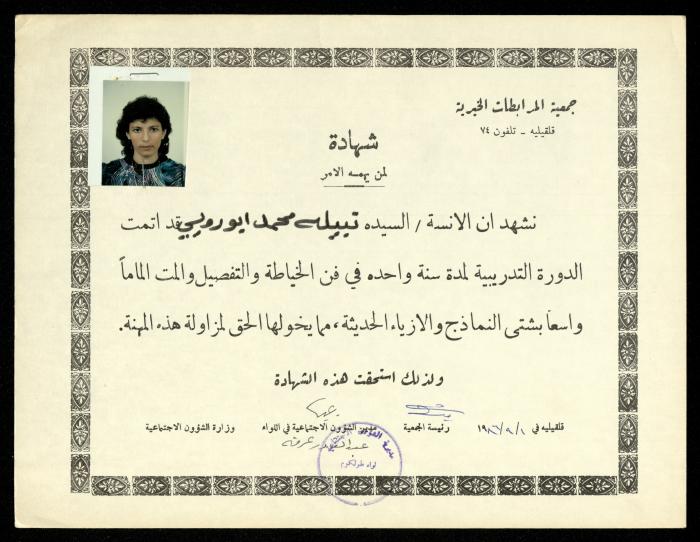 جمعية المرابطات الخيرية
قلقيليه - تلفون ٧٤
شهادة
لمن يهمه الامر
نشهد ان الانسة / السيده نبيله محمد ابو رويس قد اتمت
الدورة التدريبية لمدة سنة واحده في فن الخياطة والتفصيل والمت الماماً
واسعاً بشتى النماذج والازياء الحديثة، مما يخولها الحق لمزاولة هذه المهنة.
ولذلك استحقت هذه الشهادة
قلقيليه في ١/٩/١٩٨٧ رئيسة الجمعية مدير الشؤون الاجتماعية في اللواء وزارة الشؤون الاجتماعية
لواء طولكرم